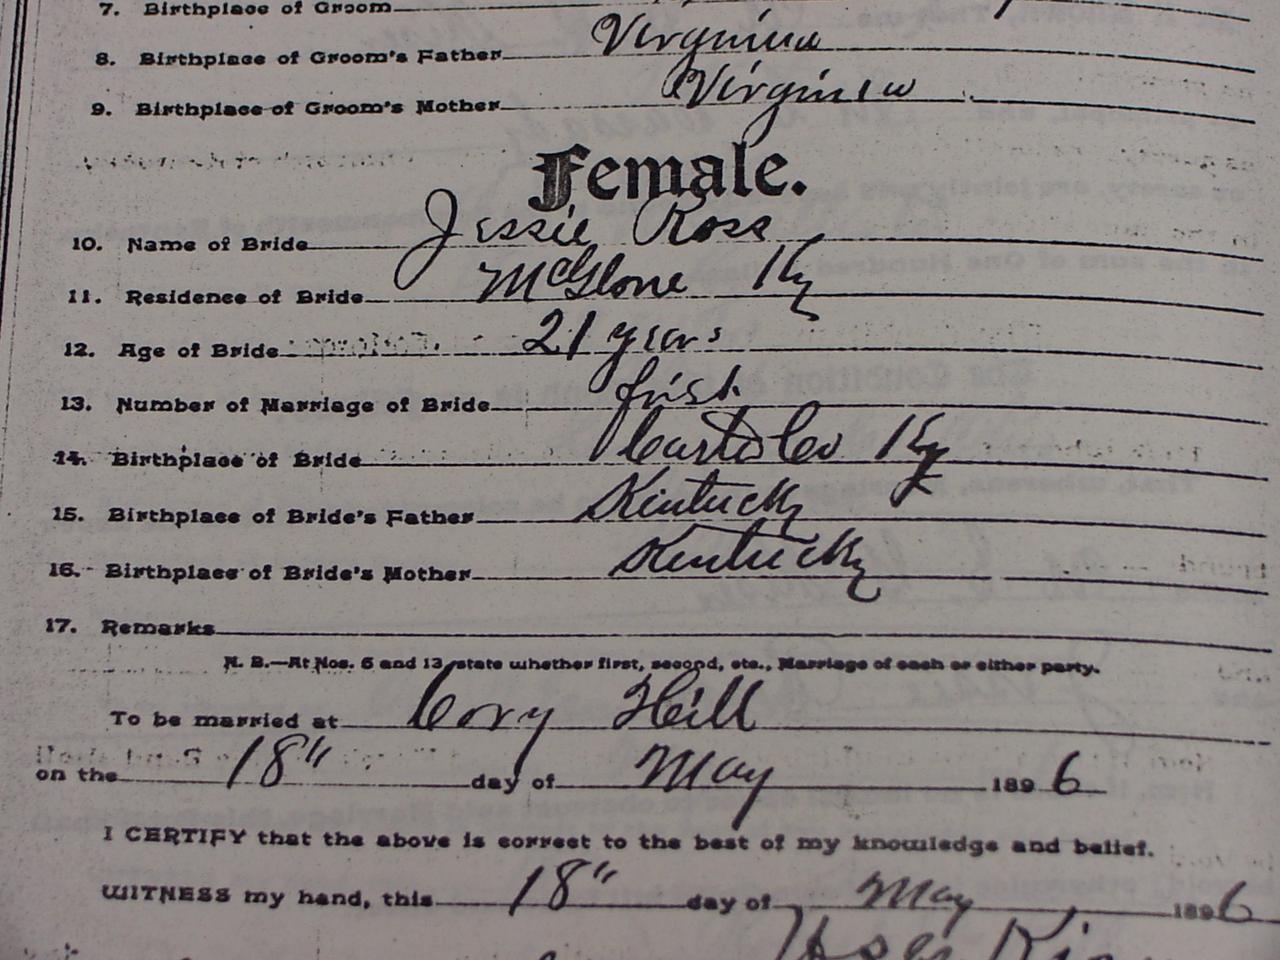 7. Birthplace of Groom
8. Birthplace of Groom's Father Virginia
9. Birthplace of Groom's Mother Virginia
Female.
10. Name of Bride Jessie Ross
11. Residence of Bride McGlone Ky
12. Age of Bride 21 years
13. Number of Marriage of Bride first
14. Birthplace of Bride Carter Co Ky
15. Birthplace of Bride's Father Kentucky
16. Birthplace of Bride's Mother Kentucky
17. Remarks
N. B.—At Nos. 6 and 13 state whether first, second, etc., Marriage of each or either party.
To be married at Cory Hill
on the 18" day of May 1896
I CERTIFY that the above is correct to the best of my knowledge and belief.
WITNESS my hand, this 18" day of May 1896